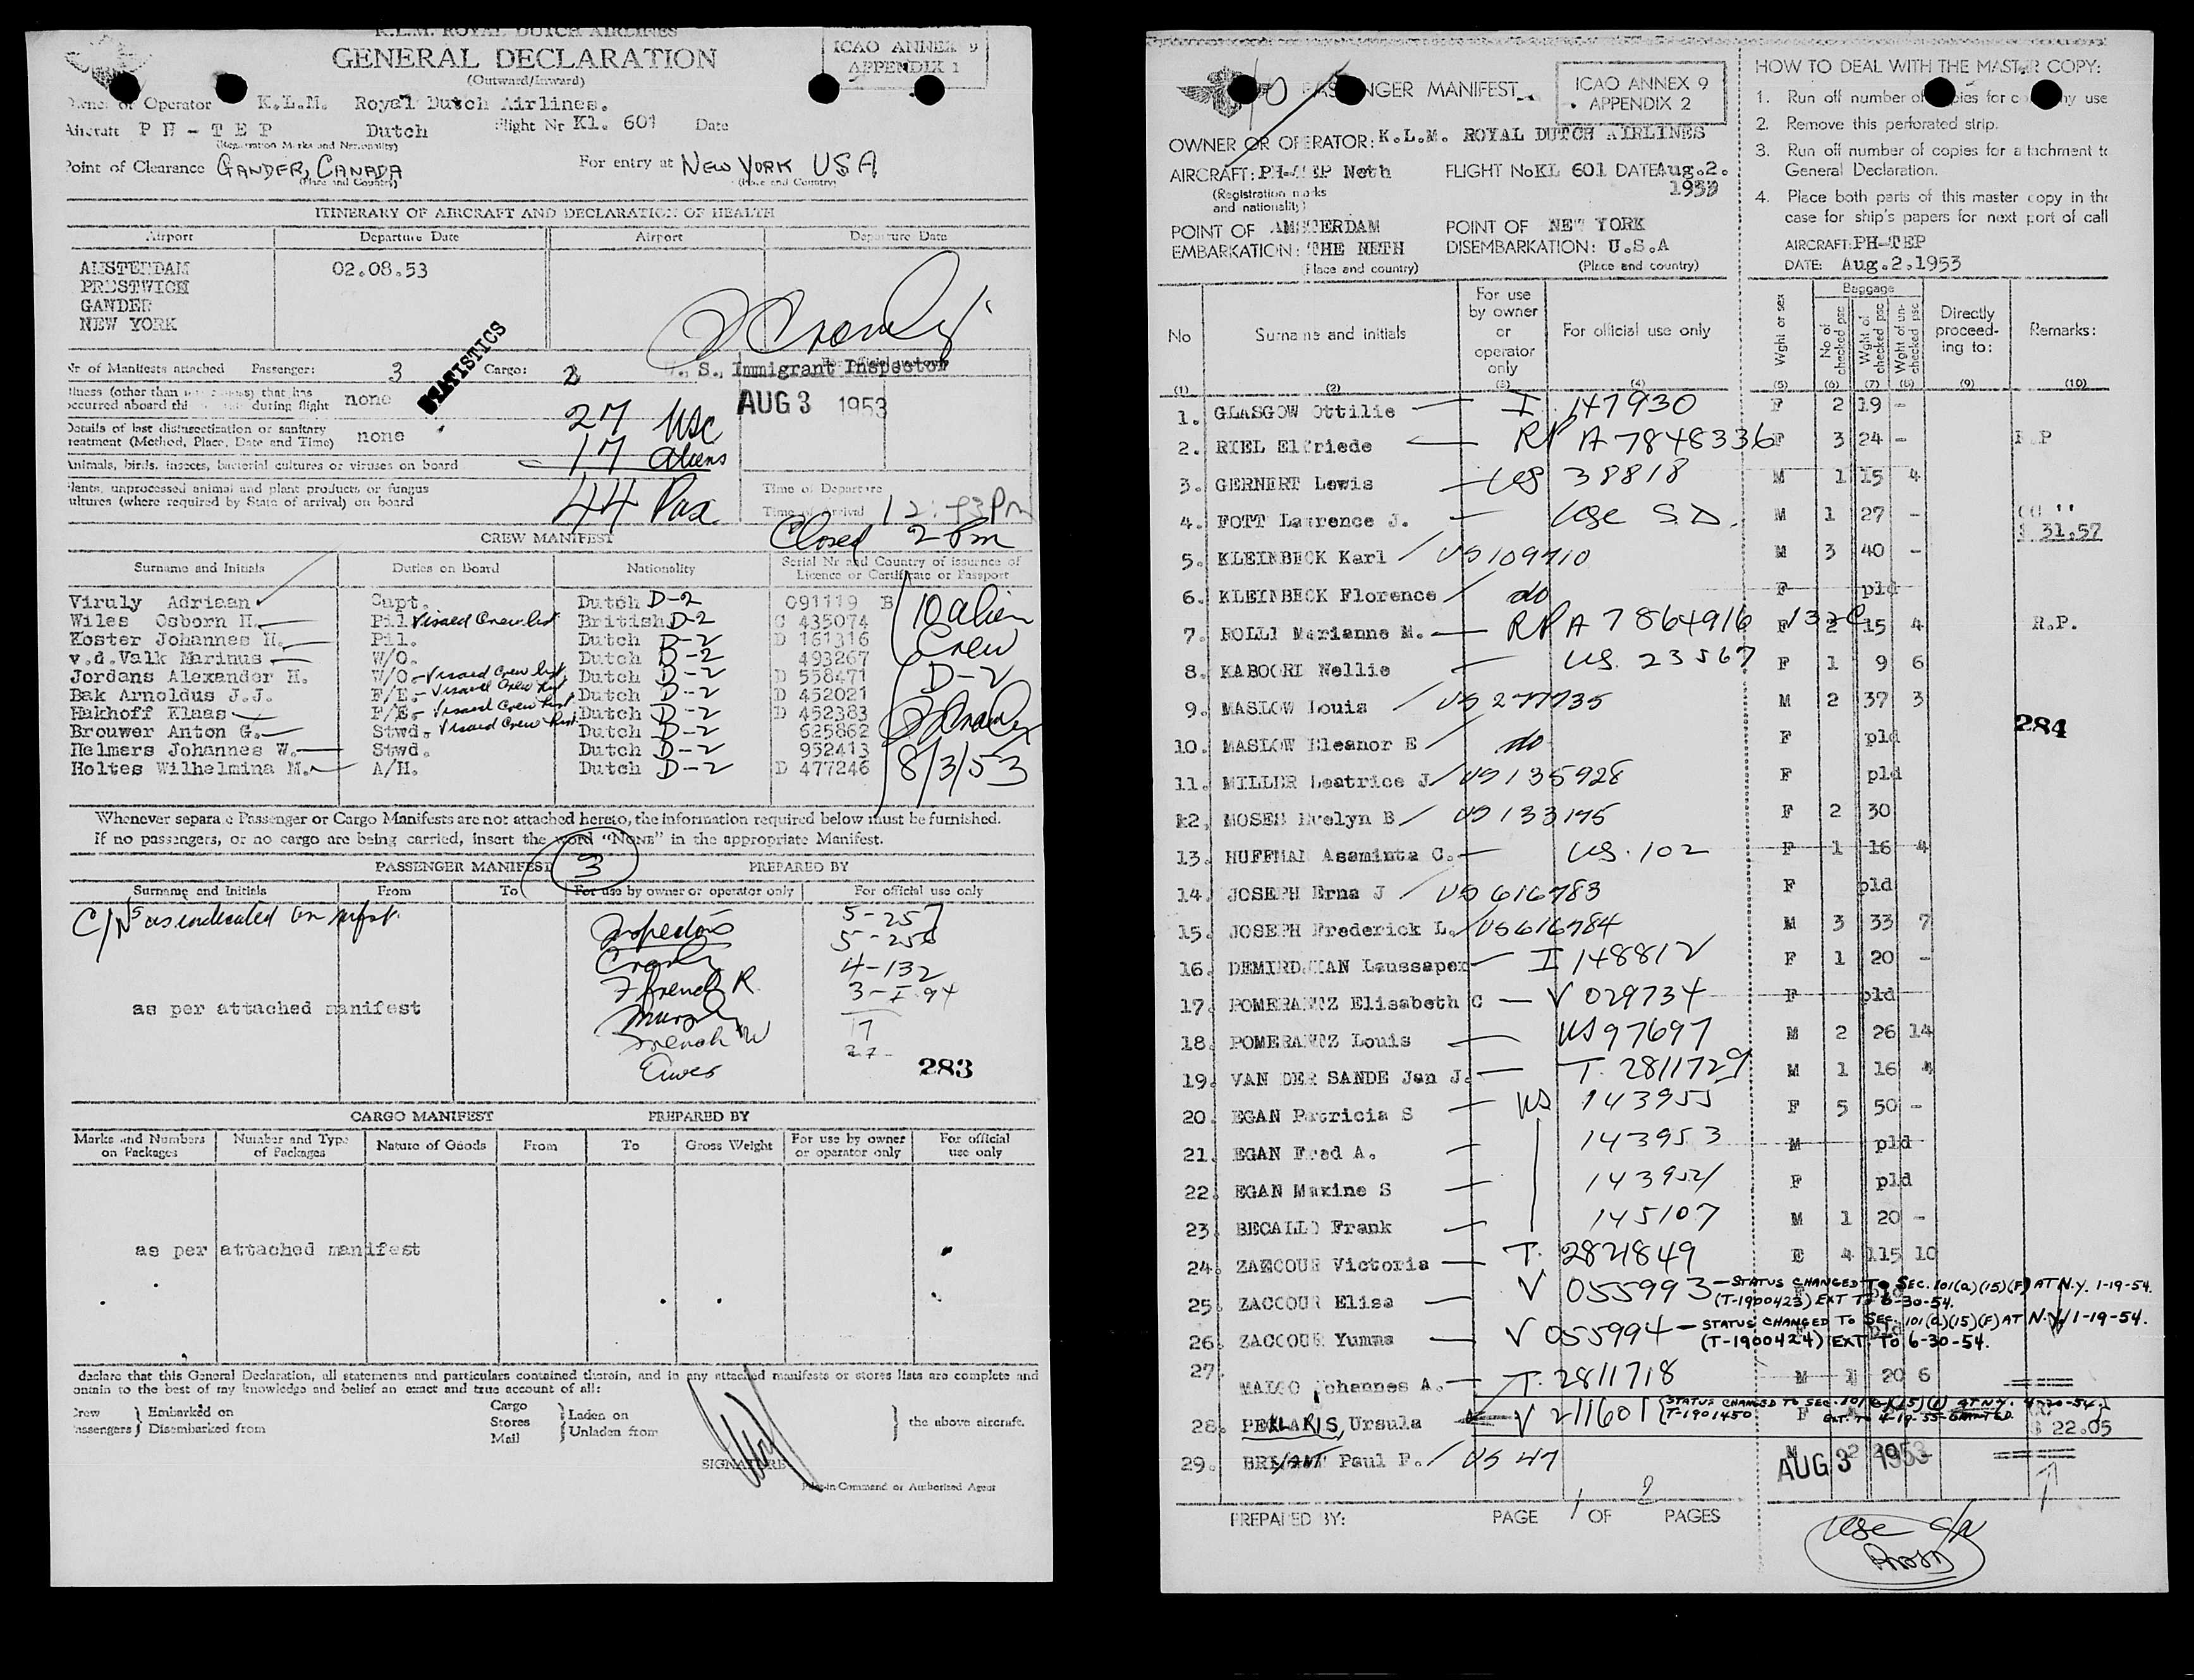 K.L.M. ROYAL DUTCH AIRLINES
GENERAL DECLARATION
(Outward/Inward)
ICAO ANNEX 9
APPENDIX 1
Operator K.L.M. Royal Dutch Airlines.
Aircraft PH - TEP Dutch Flight Nr Kl. 601 Date
(Registration Marks and Nationality)
Point of Clearance GANDER, CANADA For entry at NEW YORK USA
(Place and Country) (Place and Country)
ITINERARY OF AIRCRAFT AND DECLARATION OF HEALTH
Airport Departure Date Airport Departure Date
AMSTERDAM 02.08.53
PRESTWICH
GANDER
NEW YORK
STATISTICS
Nr of Manifests attached Passenger: 3 Cargo: 2
U. S. Immigrant Inspector
AUG 3 1953
Illness (other than airsickness) that has
occurred aboard during flight none
27 usc
Details of last disinsectization or sanitary
treatment (Method, Place, Date and Time) none
17 aliens
Animals, birds, insects, bacterial cultures or viruses on board
Plants, unprocessed animal and plant products or fungus
cultures (where required by State of arrival) on board
44 Pax
Time of Departure
Time of Arrival 12:43 PM
Closed 2 Pm
CREW MANIFEST
Surname and Initials Duties on Board Nationality Serial Nr and Country of issuance of
Licence or Certificate or Passport
Viruly Adriaan Capt. Dutch D-2 091119 B
Wiles Osborn H. Pil. Visaed Crew list British D-2 C 435074
Koster Johannes H. Pil. Dutch D-2 D 161316
v.d.Valk Marinus W/O. Dutch D-2 493267
Jordans Alexander H. W/O. - Visaed Crew list Dutch D-2 D 558471
Bak Arnoldus J.J. F/E. - Visaed Crew list Dutch D-2 D 452021
Hakhoff Klaas F/E. - Visaed Crew list Dutch D-2 D 452383
Brouwer Anton G. Stwd. Visaed Crew list Dutch D-2 625862
Helmers Johannes W. Stwd. Dutch D-2 952413
Holtes Wilhelmina M. A/H. Dutch D-2 D 477246
10 alien
Crew
D-2
8/3/53
Whenever separate Passenger or Cargo Manifests are not attached hereto, the information required below must be furnished.
If no passengers, or no cargo are being carried, insert the word “NONE” in the appropriate Manifest.
3
PASSENGER MANIFEST PREPARED BY
Surname and Initials From To For use by owner or operator only For official use only
C/Ns as indicated on mfst.
Inspectors
5-257
5-256
4-132
French R.
3-I 94
Murphy
17
French W
27
as per attached manifest
283
CARGO MANIFEST PREPARED BY
Marks and Numbers on Packages Number and Type of Packages Nature of Goods From To Gross Weight For use by owner or operator only For official use only
as per attached manifest
declare that this General Declaration, all statements and particulars contained therein, and in any attached manifests or stores lists are complete and
contain to the best of my knowledge and belief an exact and true account of all:
Crew Embarked on
Passengers Disembarked from
Cargo
Stores
Mail
Laden on
Unladen from
the above aircraft.
SIGNATURE
Pilot-in-Command or Authorised Agent
PASSENGER MANIFEST
ICAO ANNEX 9
APPENDIX 2
OWNER OR OPERATOR: K.L.M. ROYAL DUTCH AIRLINES
AIRCRAFT: PH-TEP Neth FLIGHT No KL 601 DATE Aug.2.
1953
(Registration marks
and nationality)
POINT OF AMSTERDAM POINT OF NEW YORK
EMBARKATION: THE NETH DISEMBARKATION: U.S.A
(Place and country) (Place and country)
HOW TO DEAL WITH THE MASTER COPY:
1. Run off number of copies for company use
2. Remove this perforated strip.
3. Run off number of copies for attachment to
General Declaration.
4. Place both parts of this master copy in the
case for ship's papers for next port of call
AIRCRAFT: PH-TEP
DATE: Aug.2,1953
No Surname and initials For use by owner or operator only For official use only Wght or sex Baggage No of checked psc Wght of checked psc Wght of un-checked psc Directly proceed-ing to: Remarks:
(1) (2) (3) (4) (5) (6) (7) (8) (9) (10)
1. GLASGOW Ottilie I. 147930 F 2 19 -
2. RIEL Elfriede RP A 7848336 F 3 24 - R.P
3. GERNERT Lewis US 38818 M 1 15 4
4. FOTT Laurence J. usc S.D. M 1 27 -
$ 31.57
5. KLEINBECK Karl US 109710 M 3 40 -
6. KLEINBECK Florence do F pld
7. ROLLI Marianne M. RP A 7864916 F 2 15 4 R.P.
8. KABOORI Nellie US. 23567 F 1 9 6
9. MASLOW Louis US 277735 M 2 37 3
284
10. MASLOW Eleanor E do F pld
11. MILLER Beatrice J US 135928 F pld
12. MOSES Evelyn B US 133175 F 2 30
13. HUFFMAN Assminta C. US. 102 F 1 16 4
14. JOSEPH Erna J US 616783 F pld
15. JOSEPH Frederick L. US 616784 M 3 33 7
16. DEMIRDJIAN Laussaper I 148812 F 1 20 -
17. POMERANTZ Elisabeth C V 029734 F pld
18. POMERANTZ Louis US 97697 M 2 26 14
19. VAN DER SANDE Jan J. T. 2811729 M 1 16 4
20. EGAN Patricia S US 143955 F 5 50 -
21. EGAN Fred A. 143953 M pld
22. EGAN Maxine S 143954 F pld
23. BECALLO Frank 145107 M 1 20 -
24. ZACCOUR Victoria T. 2821849 F 4 115 10
25. ZACCOUR Elise V 055993 - STATUS CHANGED TO SEC. 101(a)(15)(F) AT N.Y. 1-19-54.
(T-1900423) EXT TO 6-30-54.
26. ZACCOUR Yumna V 055994 - STATUS CHANGED TO SEC. 101(a)(15)(F) AT N.Y. 1-19-54.
(T-1900424) EXT. TO 6-30-54.
27. Johannes A. T. 2811718 M 1 20 6
28. PEKLARIS, Ursula V 211601 STATUS CHANGED TO SEC. AT N.Y.
T-1901450 EXT. TO 4-19-55 GRANTED
$ 22.05
29. Paul P. US 47 M
AUG 3 1953
PREPARED BY: PAGE 1 OF 2 PAGES
usc